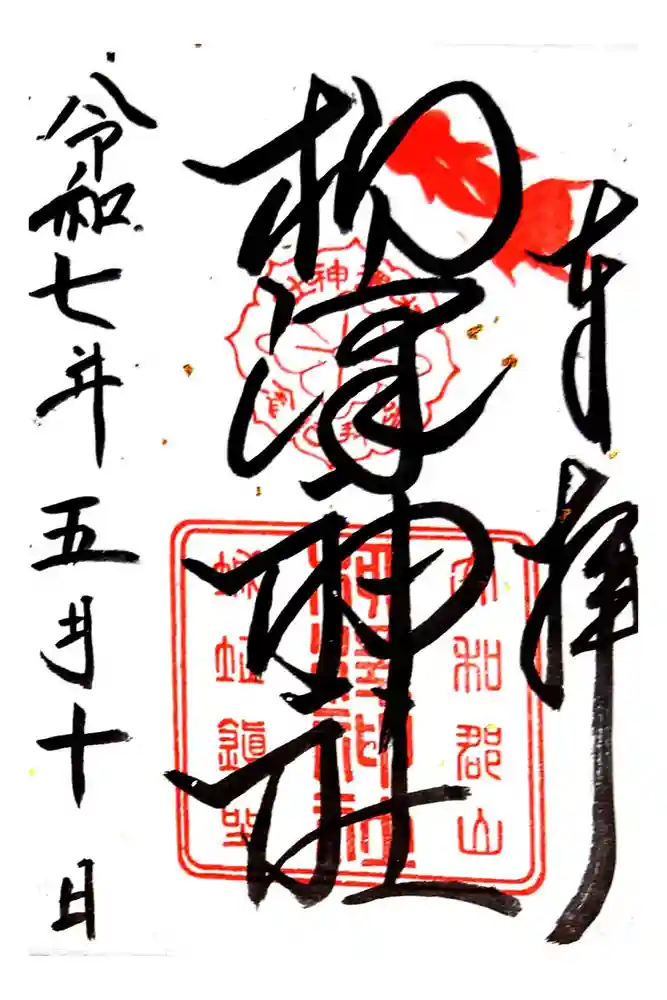 奉拝
柳澤神社
令和七年五月十日
大和郡山
柳澤神社
城址鎮坐
柳澤神社